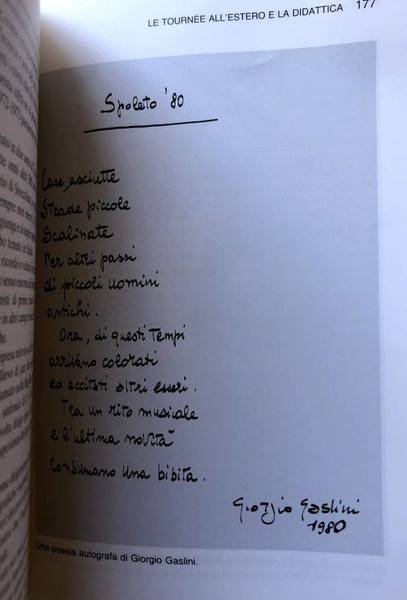 LE TOURNÈE ALL'ESTERO E LA DIDATTICA 177
Spoleto '80
Case asciutte
Strade piccole
Scalinate
Per altri passi
di piccoli uomini
antichi.
Ora, di questi tempi
arrivano colorati
ed eccitati altri esseri.
Tra un rito musicale
e l'ultima novità
consumano una bibita.
Giorgio Gaslini
1980
Una poesia autografa di Giorgio Gaslini.